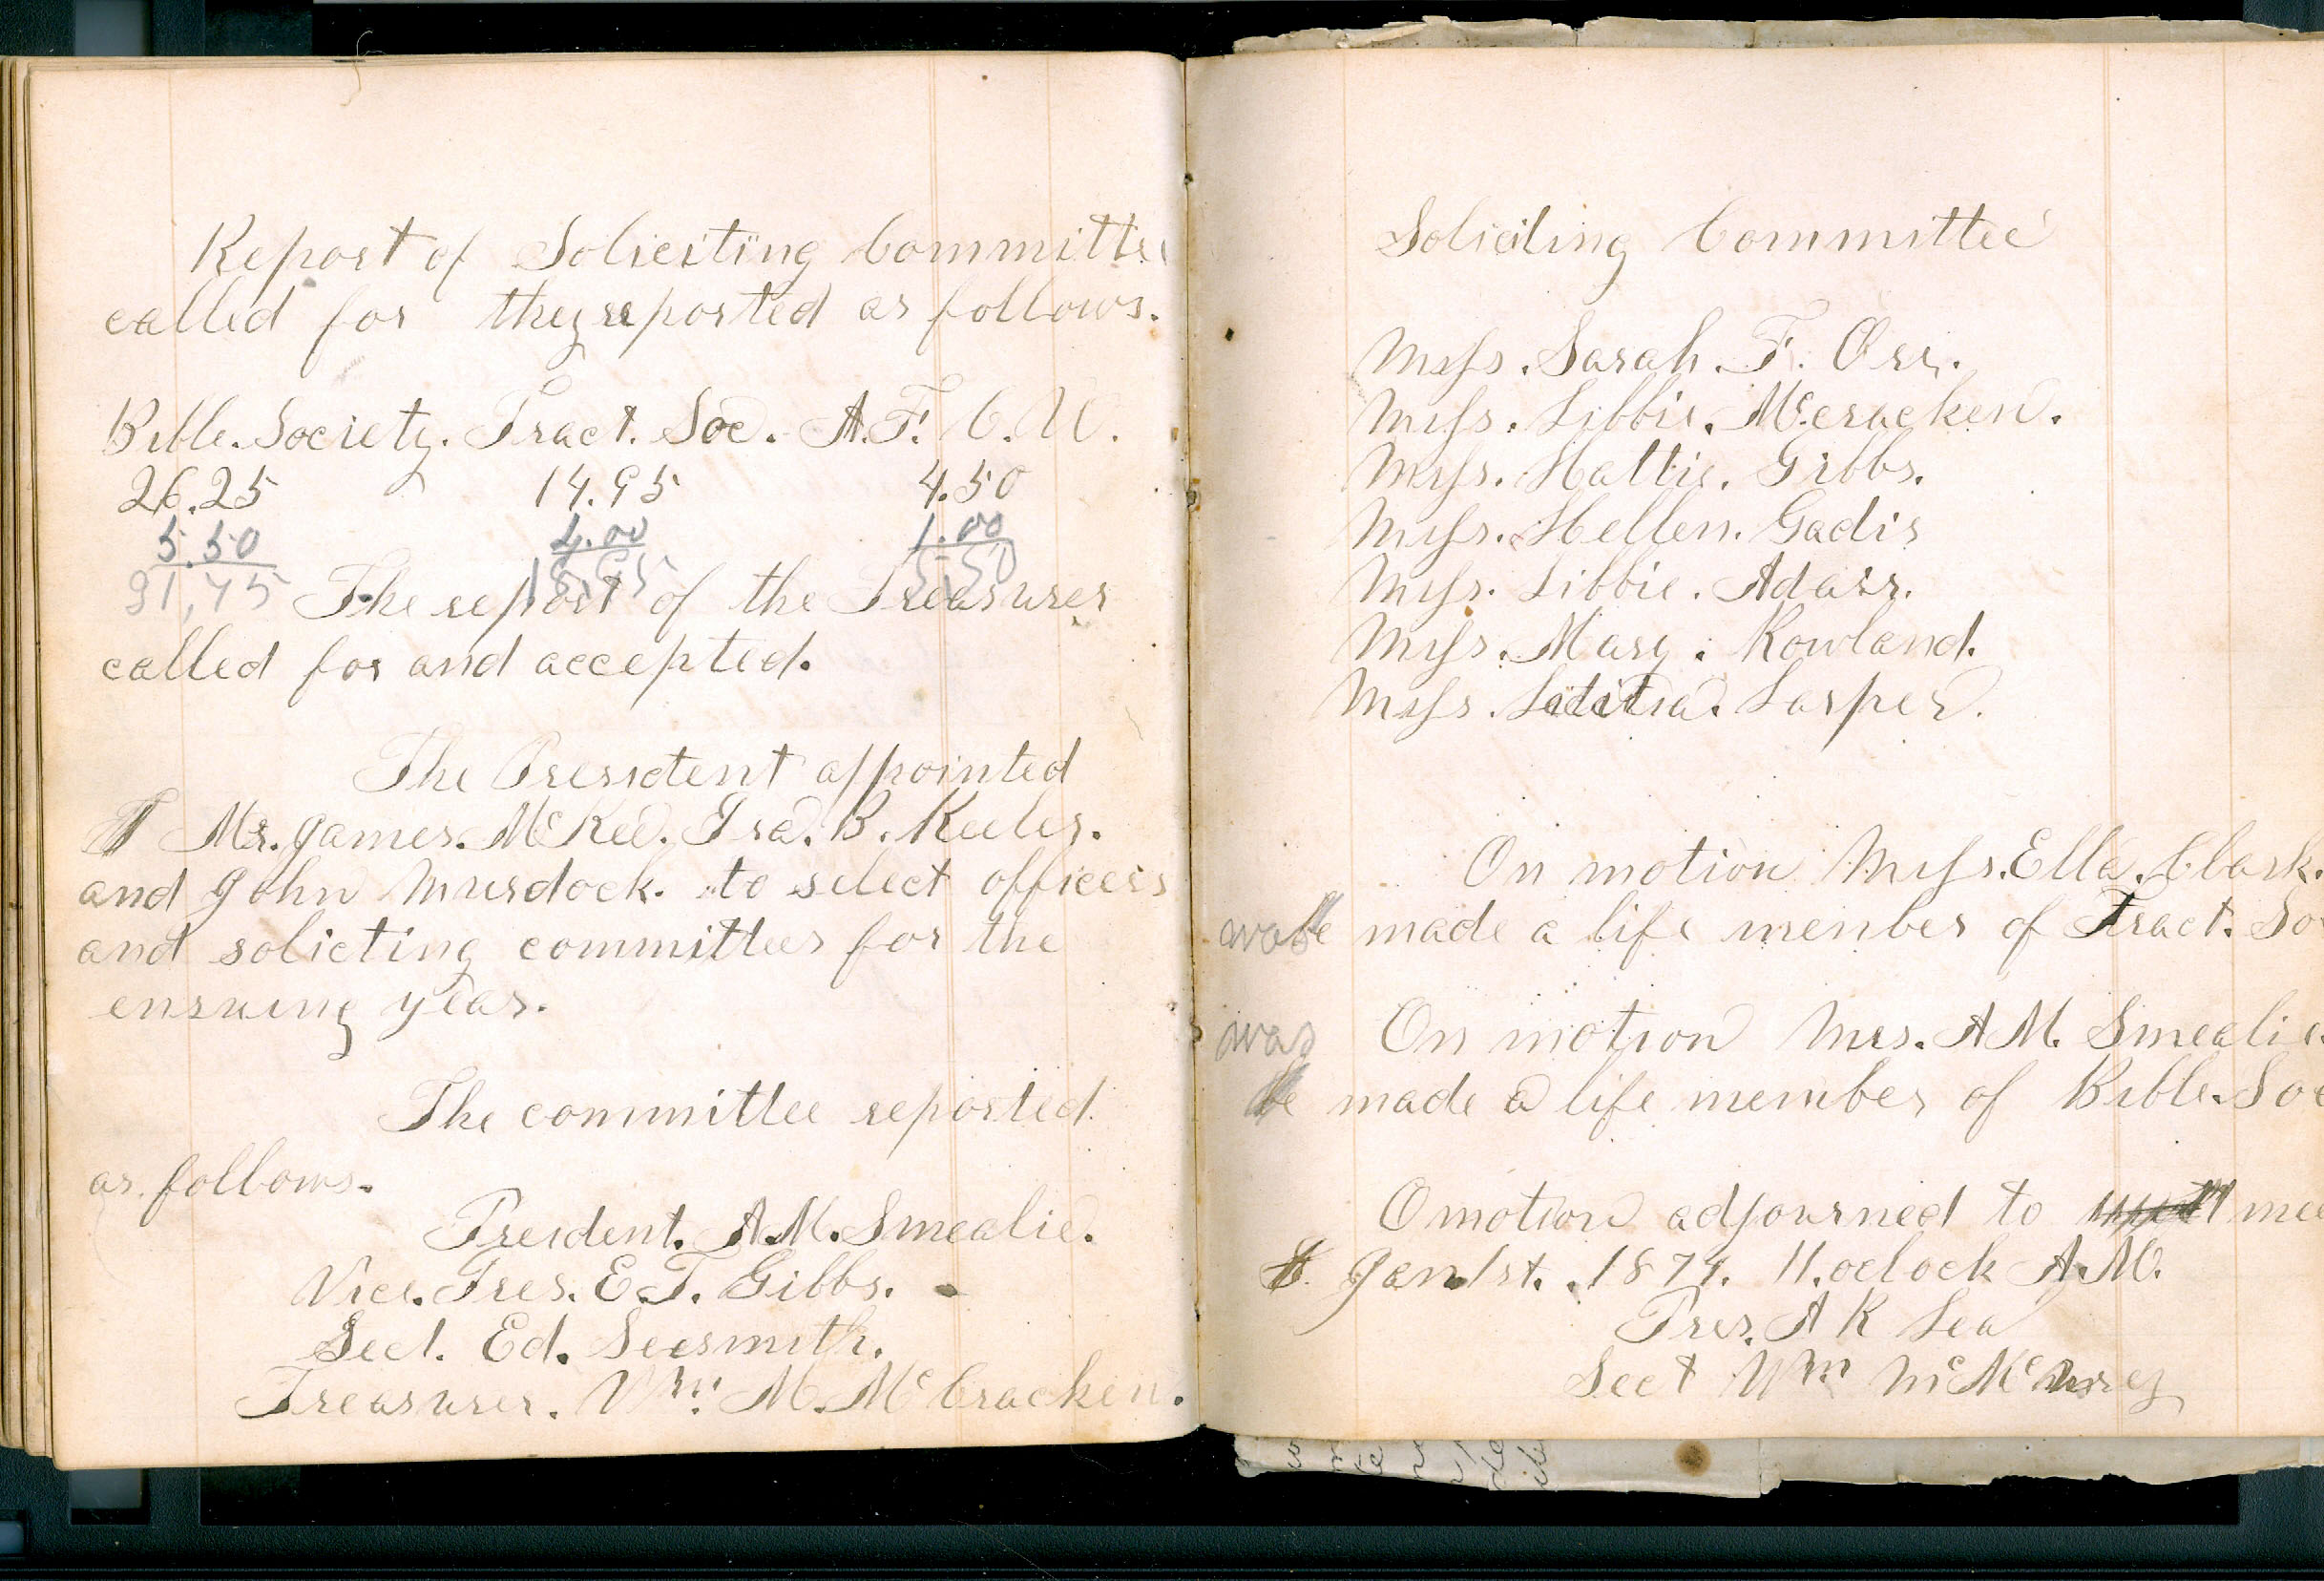 Report of Soliciting Committee
called for they reported as follows.
Bible. Society. Tract. Soc. A.F. C. U.
26.25 14.95 4.50
5.50 4.00 1.00
31,75 18.95 5.50
The report of the Treasurer
called for and accepted.
The President appointed
Mr. James. McKee. Ira. B. Keeler.
and John Murdock. to select officers
and solicting committees for the
ensuing year.
The committee reported.
as follows.
Preident. A.M. Smealie.
Vice. Pres. E.T. Gibbs.
Sect. Ed. Seesmith.
Treasurer. Wm. M. McCracken.
Soliciting Committee
Miss. Sarah. F. Orr.
Miss. Libbie. Mccracken.
Miss. Hattie. Gibbs.
Miss. Hellen. Gadis
Miss. Libbie. Adair.
Miss. Mary. Rowland.
Miss. Letitia. Lasper.
On motion Miss. Ella. Clark.
was made a life menber of Tract. So
was On motion Mrs. A M. Smealie.
be made a life member of Bible. Soc
O motion adjourned to mee
Jan. 1st. 1879. 11. oclock A.M.
Pres. A R Lea
Sect Wm